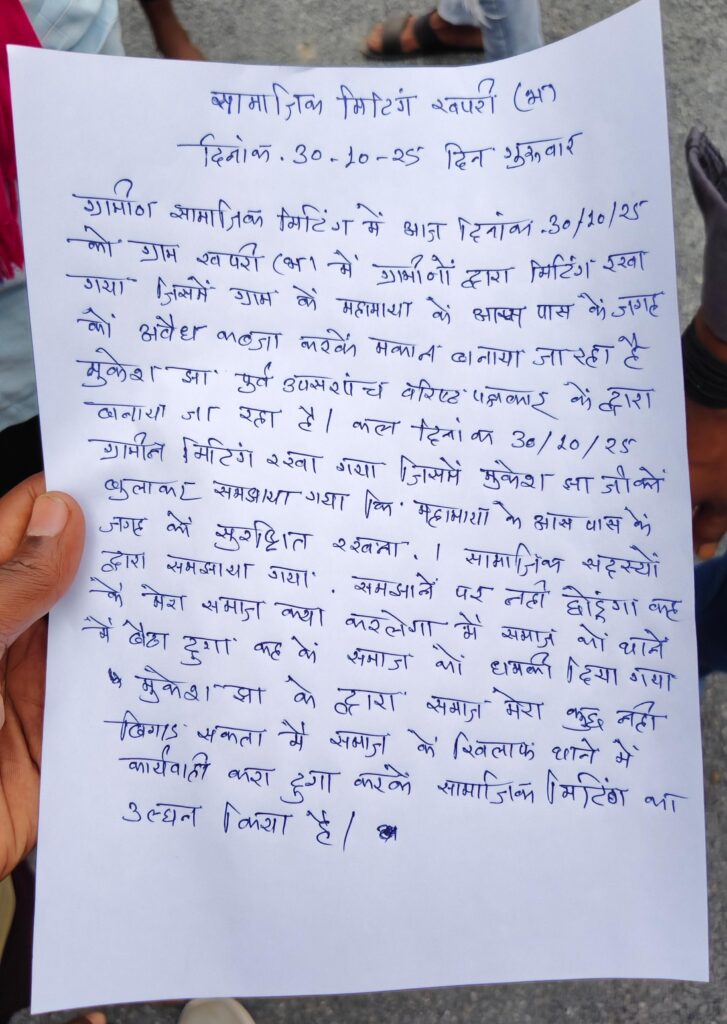 सामाजिक मिटिंग खपरी (भ)
दिनांक. 30-10-25 दिन शुक्रवार
ग्रामीण सामाजिक मिटिंग में आज दिनांक .30/10/25
को ग्राम खपरी (भ) में ग्रामीणों द्वारा मिटिंग रखा
गया जिसमें ग्राम के महामाया के आस पास के जगह
को अवैध कब्जा करके मकान बनाया जा रहा है
मुकेश झा पुर्व उपसरपंच वरिष्ट पत्रकार के द्वारा
बनाया जा रहा है। कल दिनांक 30/10/25
ग्रामीन मिटिंग रखा गया जिसमें मुकेश झा जी को
बुलाकर समझाया गया कि महामाया के आस पास के
जगह को सुरक्षित रखना.। सामाजिक सदस्यों
द्वारा समझाया गया. समझाने पर नही छोडुंगा कह
के मेरा समाज क्या करलेगा मै समाज को थाने
में बैठा दुगा कह के समाज को धमकी दिया गया
मुकेश झा के द्वारा समाज मेरा कुछ नही
बिगाड़ सकता मै समाज के खिलाफ थाने में
कार्यवाही करा दुगा करके सामाजिक मिटिंग का
उल्घन किया है।